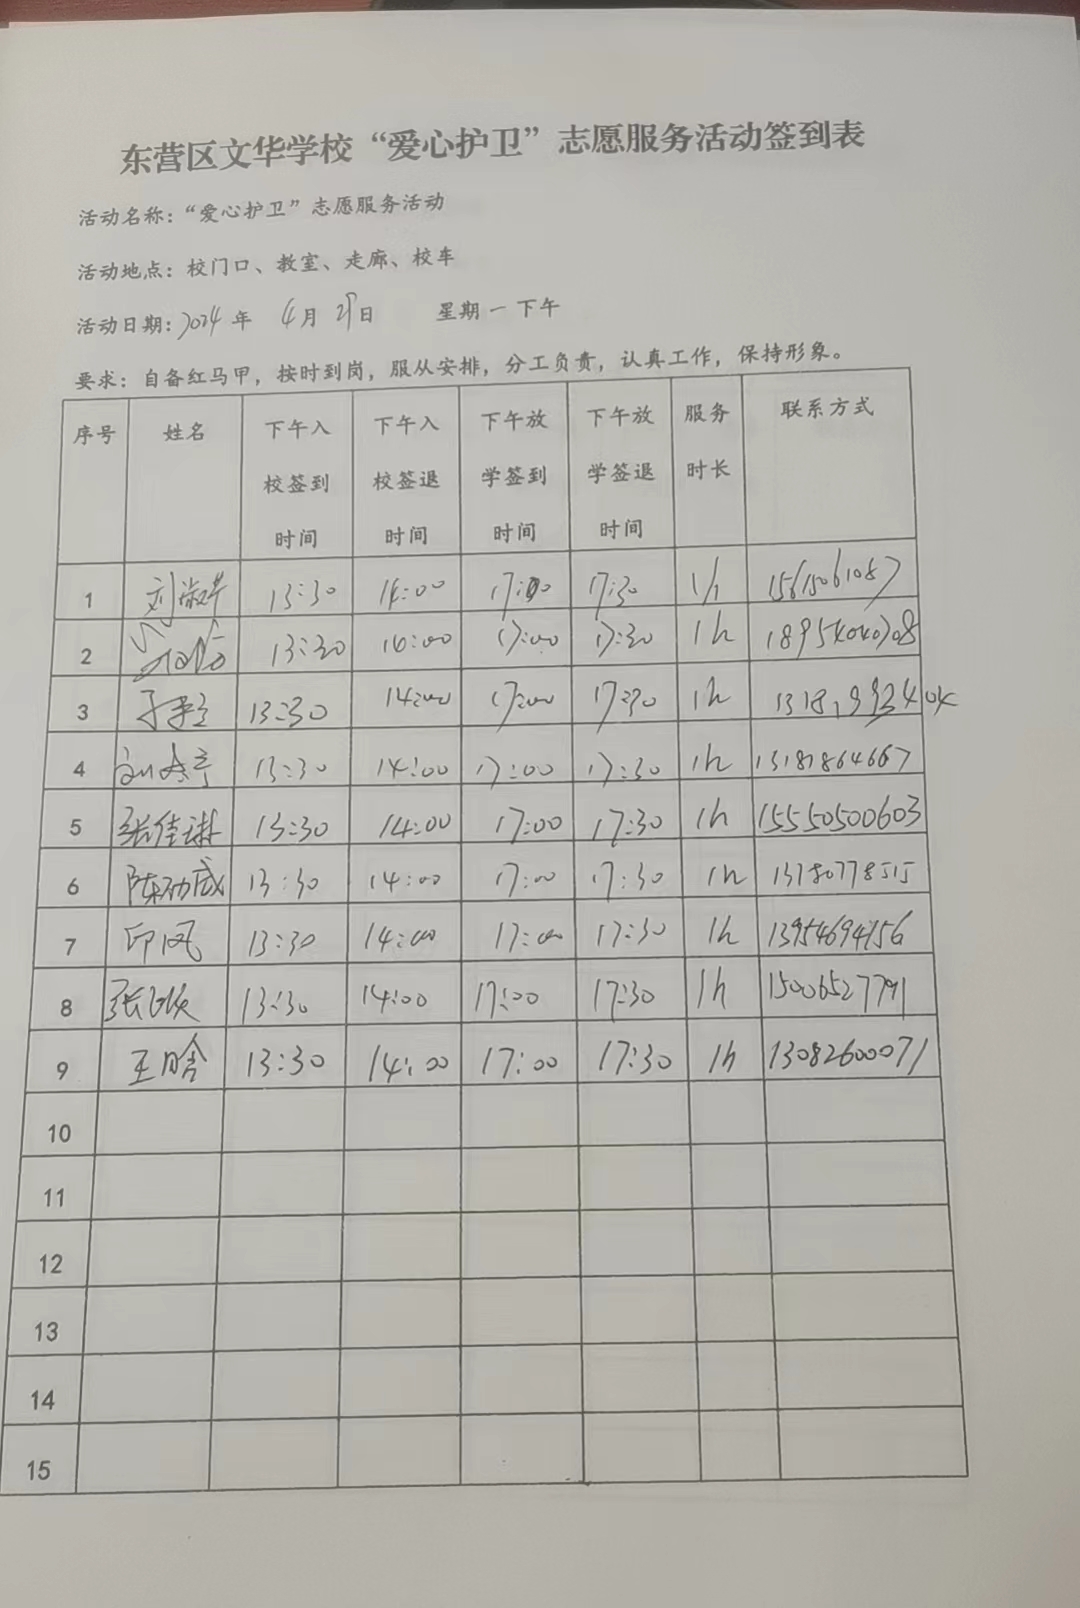 东营区文华学校“爱心护卫”志愿服务活动签到表
活动名称：“爱心护卫”志愿服务活动
活动地点：校门口、教室、走廊、校车
活动日期：2024年 4月 29日 星期一下午
要求：自备红马甲，按时到岗，服从安排，分工负责，认真工作，保持形象。
序号 姓名 下午入校签到时间 下午入校签退时间 下午放学签到时间 下午放学签退时间 服务时长 联系方式
1 13:30 14:00 17:00 17:30 1h 15615061087
2 13:30 14:00 17:00 17:30 1h 18954040708
3 13:30 14:00 17:00 17:30 1h
4 13:30 14:00 17:00 17:30 1h 13181864667
5 张佳琳 13:30 14:00 17:00 17:30 1h 15550500603
6 13:30 14:00 17:00 17:30 1h
7 印凤 13:30 14:00 17:00 17:30 1h
8 13:30 14:00 17:00 17:30 1h 15006527791
9 王晗 13:30 14:00 17:00 17:30 1h 13082600071
10
11
12
13
14
15